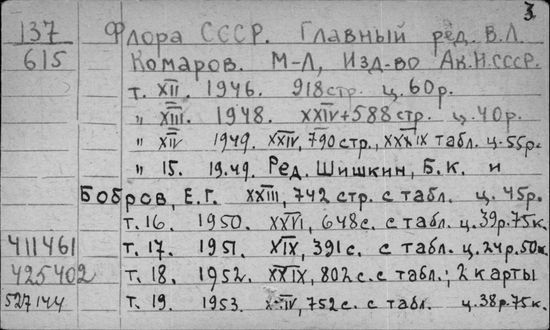 3.
137 Флора СССР. Главный ред. В.Л.
615 Комаров. М-Л, Изд-во Ак.Н.СССР.
т. XII. 1946. 918 стр. ц. 60р.
" XIII. 1948. XXIV+588 стр. ц. 40р.
" XIV 1949. XXIV, 790 стр., XXXIX табл. ц. 55р.
" 15. 19.49. Ред. Шишкин, Б.К. и
Бобров, Е.Г. XXIII, 742 стр. с табл. ц. 45р.
т. 16. 1950. XXVI, 648 с. с табл. ц. 39р. 75к.
411461 т. 17. 1951. XIX, 391 с. с табл. ц. 24р. 50к.
425402 т. 18. 1952. XXIX, 802 с. с табл.; 2 карты
527144 т. 19. 1953. 752 с. с табл. ц. 38р. 75к.